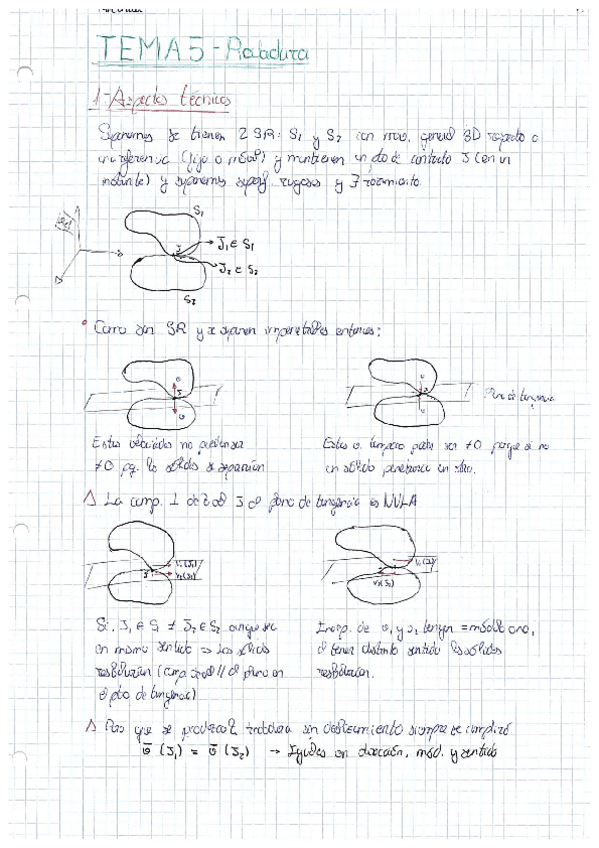 TEMA 5 - Rodadura
1.- Aspectos técnicos
Suponemos se tienen 2 SR: S₁ y S₂ con mov. general 3D respecto a
una referencia (fija o móvil) y mantienen un pto de contacto J (en un
instante) y suponemos superf. rugosas y ∃ rozamiento.
S₁
J₁ ∈ S₁
J
J₂ ∈ S₂
S₂
Como son SR y se suponen impenetrables entonces:
Plano de tangencia
Estas velocidades no pueden ser
≠0 pq. los sólidos se separarían
Estas v. tampoco puede ser ≠0 porque si no
un sólido penetraría en otro.
La comp. ⊥ de J al plano de tangencia es NULA
v₁(J₁)
v₂(J₂)
v₁(J₁)
v₂(J₂)
Si J₁ ∈ S₁ ≠ J₂ ∈ S₂ aunque sea
en mismo sentido ⇒ los sólidos
resbalarían (comp // al plano en
el pto de tangencia)
de v₁ y v₂ tengan = módulo
al tener distinto sentido los sólidos
resbalarían.
Para que se produzca rodadura sin deslizamiento siempre se cumplirá
v̄ (J₁) = v̄ (J₂) → Iguales en dirección, mod. y sentido